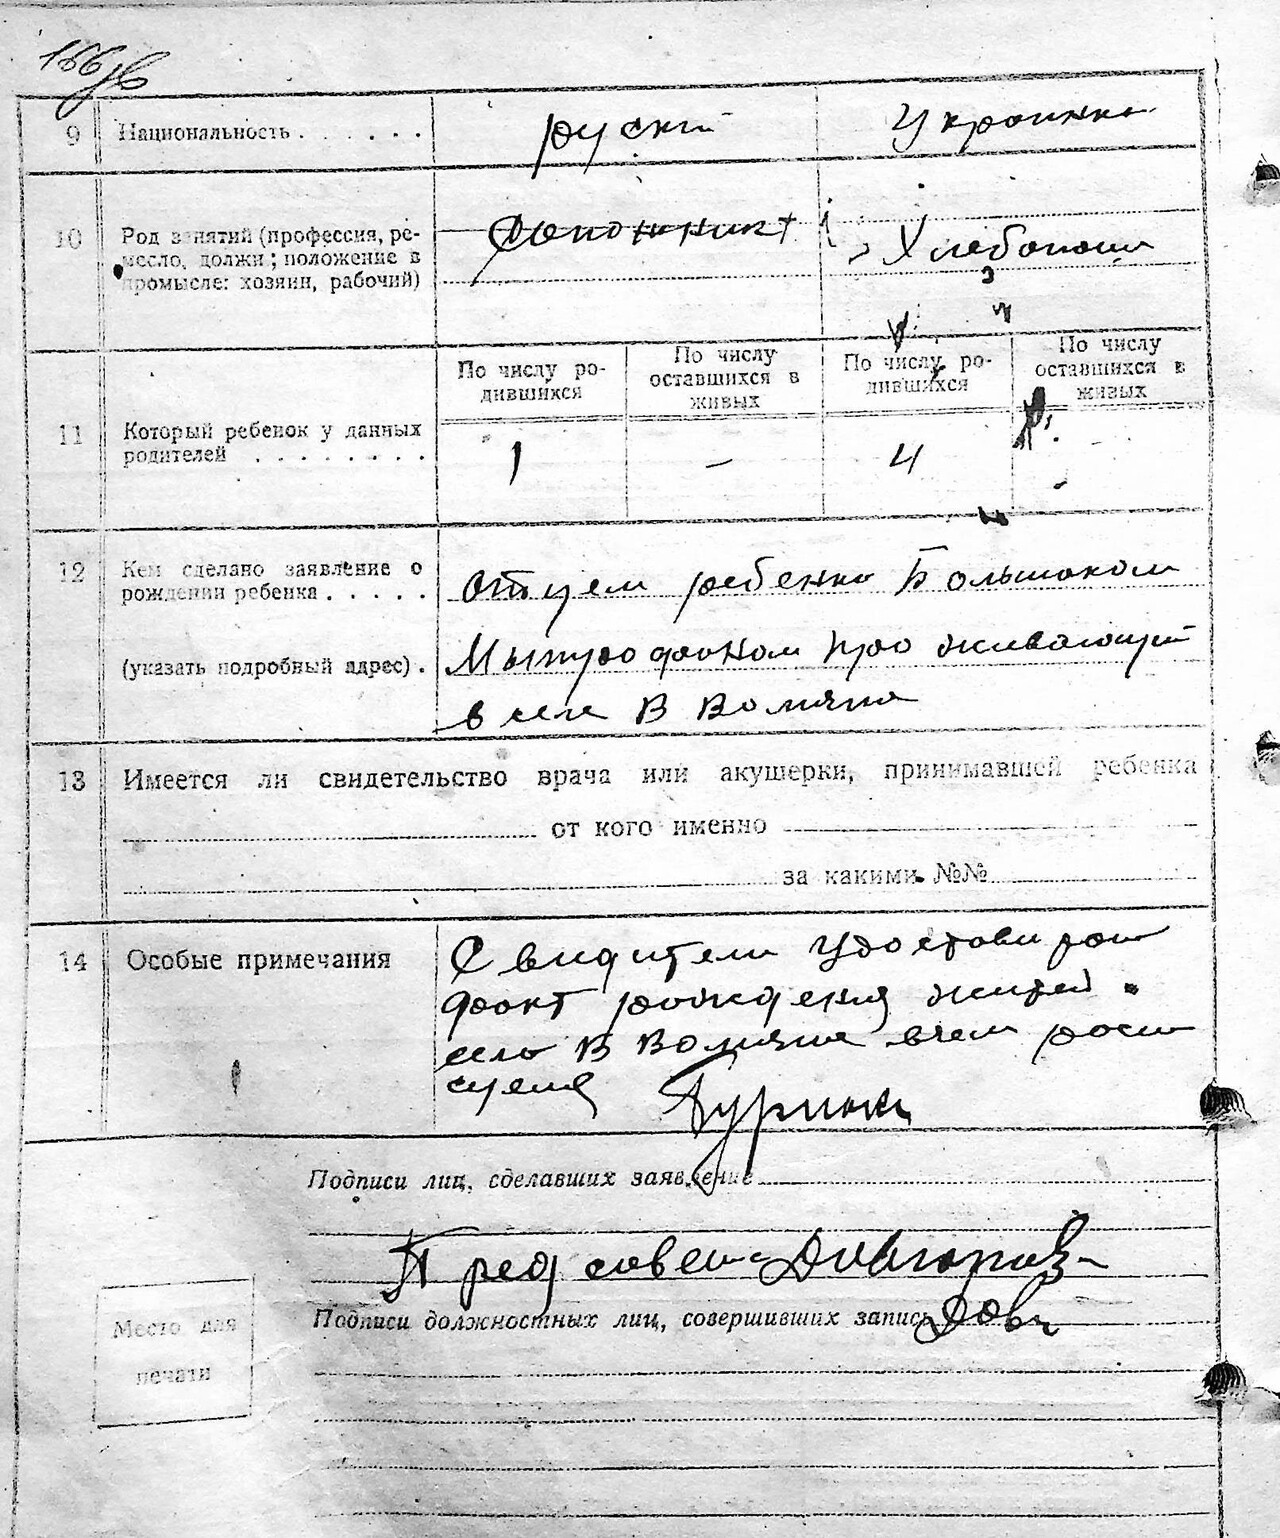 166
9 Национальность . . . . . . руский Украинка
10 Род занятий (профессия, ре-
месло, должн; положение в
промысле: хозяин, рабочий)
Хлебопаш
11 Который ребенок у данных
родителей . . . . . . . .
По числу ро-
дившихся
По числу
оставшихся в
живых
По числу ро-
дившихся
По числу
оставшихся в
живых
1 – 4 -
12 Кем сделано заявление о
рождении ребенка . . . . .
(указать подробный адрес) .
Отцем ребенка Большаком
проживающий
в селе В
13 Имеется ли свидетельство врача или акушерки, принимавшей ребенка
от кого именно
за какими №№
14 Особые примечания
Свидители
факт рождения жител
село В вчем росп
Подписи лиц, сделавших заявление
Пред совета
Подписи должностных лиц, совершивших запись
Место для
печати